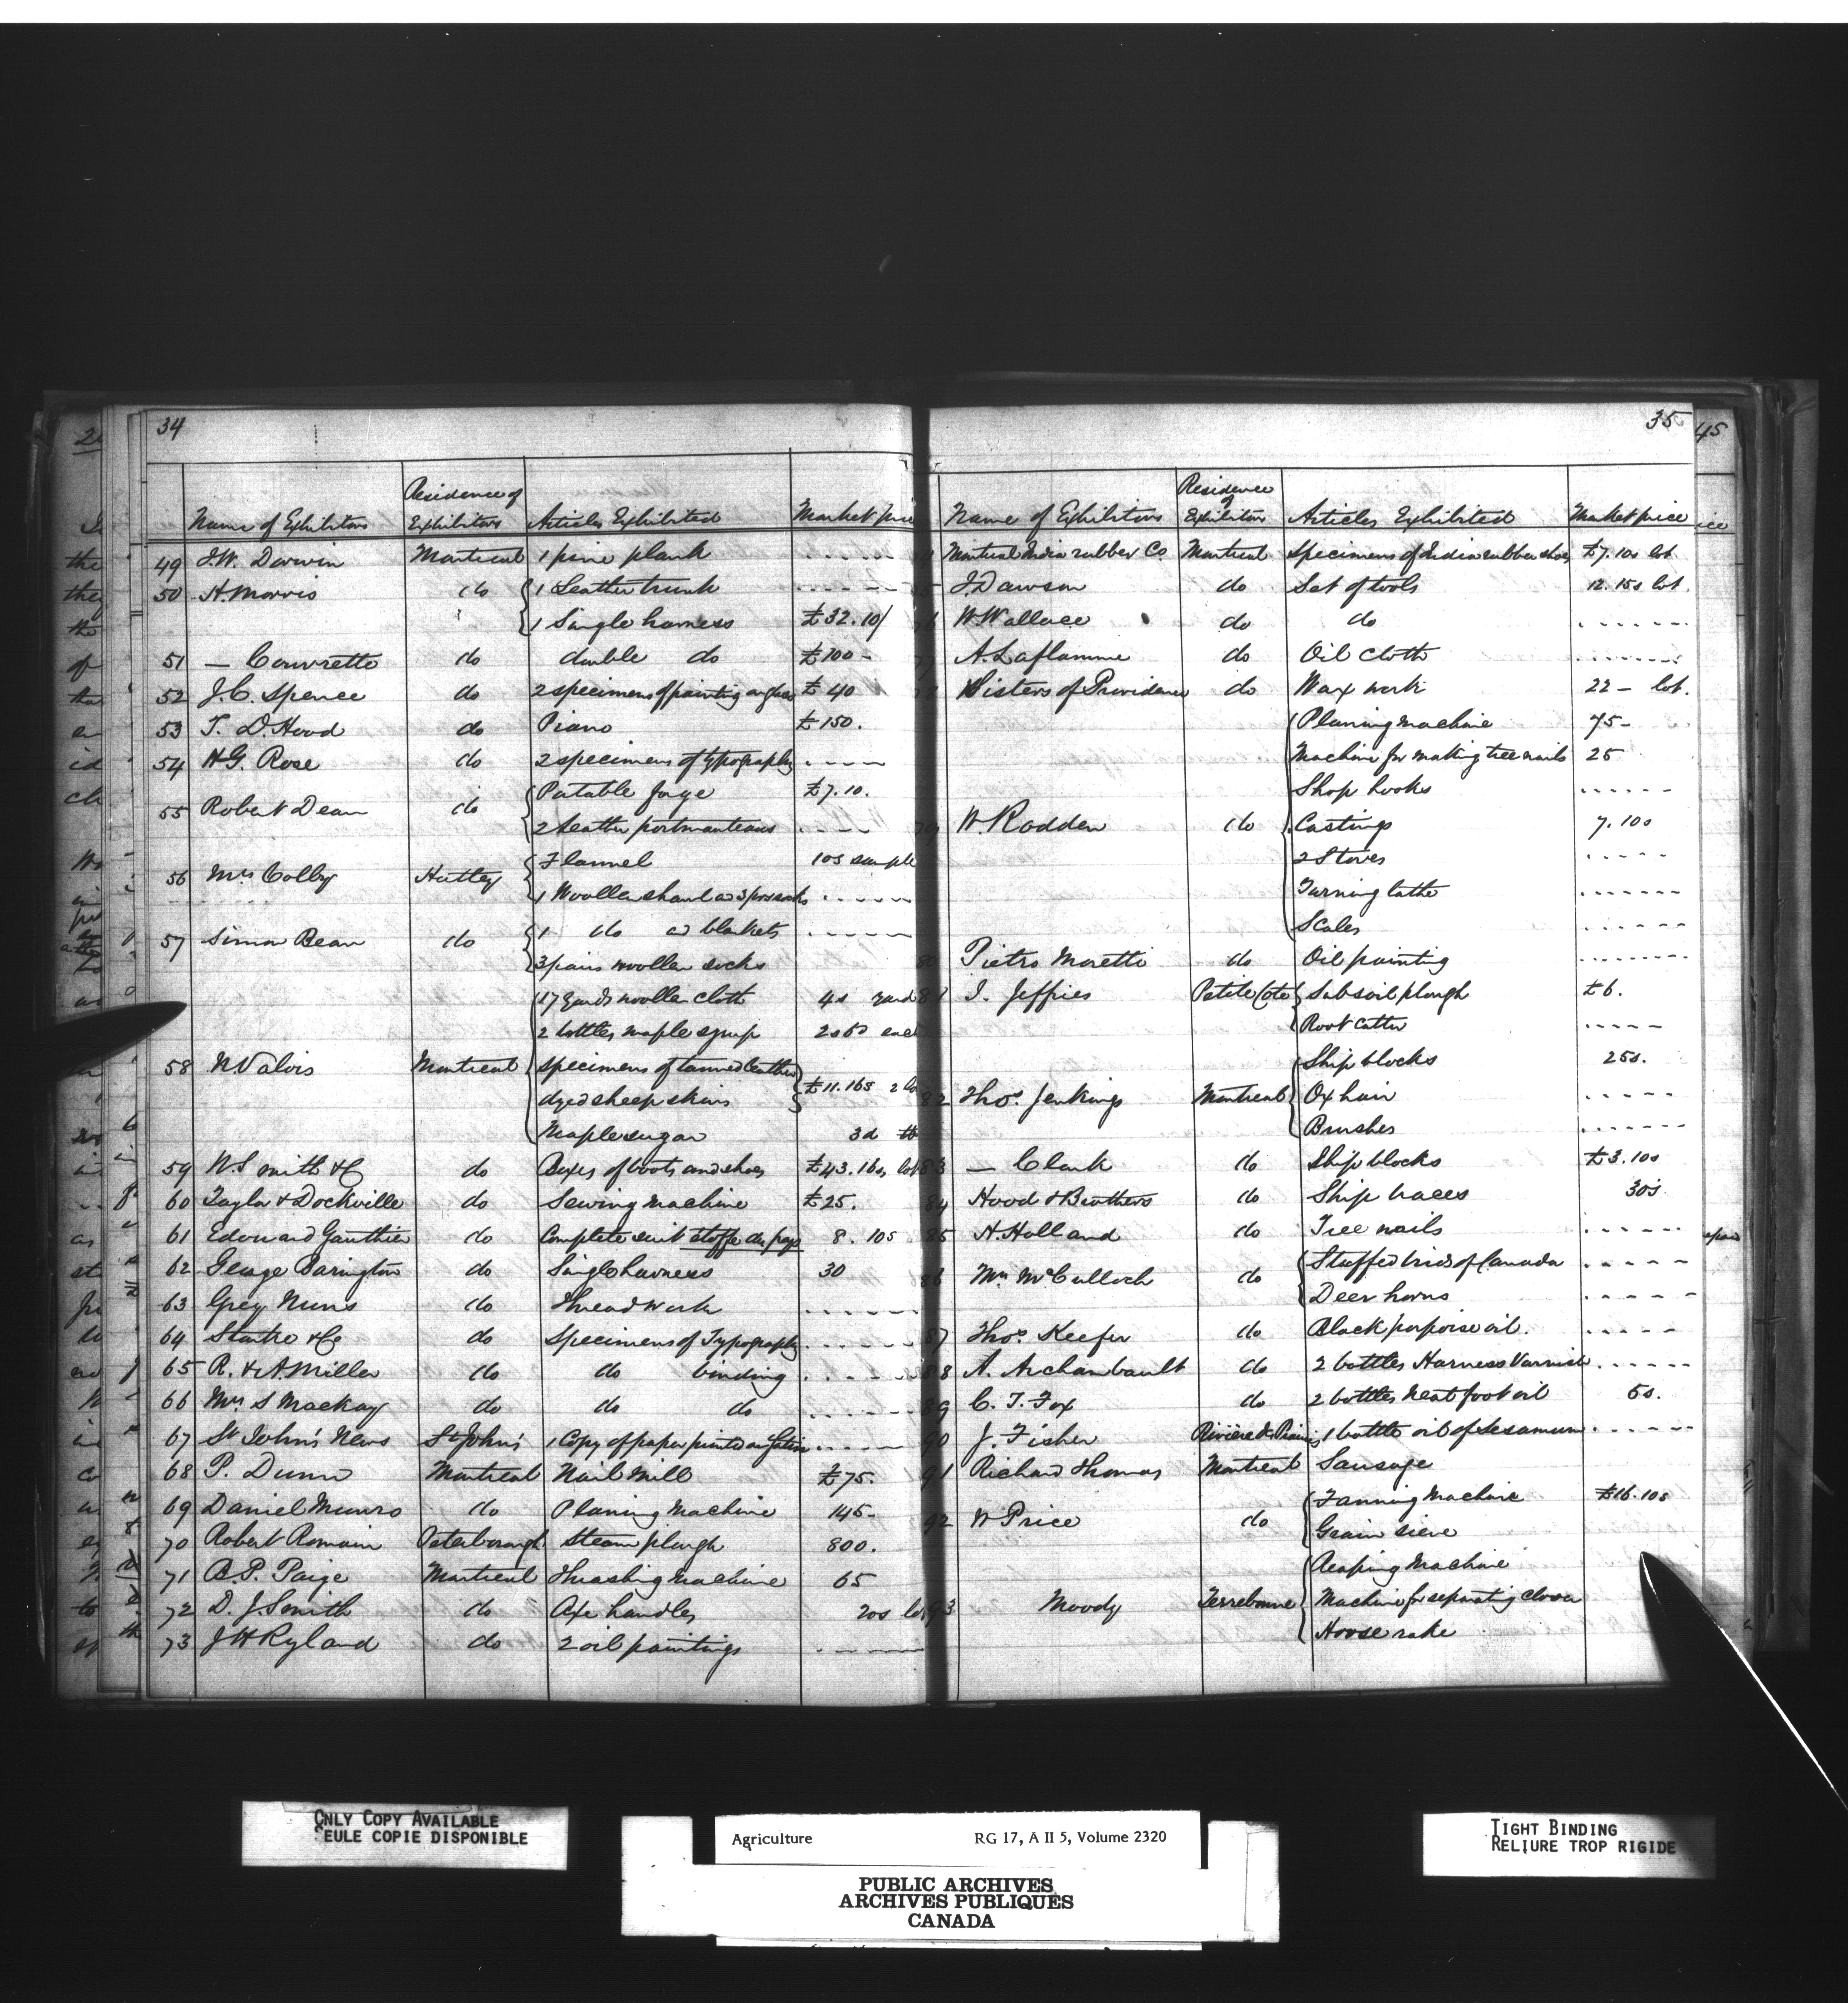 34
Name of Exhibitors Residence of Exhibitors Articles Exhibited Market price
49 J.W. Dorwin Montreal 1 pine plank - - - - -
50 H. Morris do 1 Leather trunk - - - - -
1 Single harness £32.10/
51 — Couvrette do double do £100 -
52 J.C. Spence do 2 specimens of painting on glass £40
53 T. D. Hood do Piano £150.
54 H.G. Rose do 2 specimens of typography - - - -
55 Robert Dean do Portable forge £7.10.
2 leather portmanteaus - - - -
56 Mrs Colby Hatley Flannel 10s sample
1 Woollen shawl and 3 prs socks - - - - -
57 Simon Bean do 1 do and blankets - - - - -
3 pairs woollen socks
17 yards woollen cloth 4s yard
2 bottles maple syrup 2s6d each
58 N. Valois Montreal specimens of tanned leather
dyed sheep skins £11.16s 2 lo
Maple sugar 3d lb
59 W. Smith & Co do Boxes of boots and shoes £43.16s lot
60 Taylor & Dockville do Sewing Machine £25.
61 Edouard Gauthier do Complete suit etoffe du pays 8. 10s
62 George Barington do Single harness 30
63 Grey Nuns do Thread work - - - - -
64 Starke & Co do Specimens of Typography - - - - -
65 R. & A. Miller do do binding - - - - -
66 Mrs S Mackay do do do - - - - -
67 St John's News St John's 1 Copy of paper printed on Satin - - - - -
68 P. Dunn Montreal Nail Mill £75.
69 Daniel Munro do Planing Machine 145-
70 Robert Romain Peterborough Steam plough 800.
71 B.P. Paige Montreal Thrashing Machine 65
72 D. J. Smith do Axe handles 20s lot
73 J H Ryland do 2 oil paintings - - - - -
35
Name of Exhibitors Residence of Exhibitors Articles Exhibited Market price
Montreal India rubber Co Montreal Specimens of India rubber shoes £7.10s lot
5 J. Dawson do Set of tools 12.15s lot.
6 W Wallace do do - - - - - -
77 A. Laflamme do Oil Cloth - - - - - -
Sisters of Providence do Wax work 22 - lot.
Planing machine 75-
Machine for making tree nails 25
Shop hooks - - - - - -
79 W Rodden do Castings 7.10s
2 Stoves - - - - -
Turning lathe - - - - - -
Scales - - - - - -
80 Pietro Moretti do Oil painting - - - - - -
81 I. Jeffries Petite Cote Subsoil plough £6.
Root Cutter - - - - -
Ship blocks 25s.
82 Thos. Jenkings Montreal Ox hair - - - - -
Brushes - - - - - -
83 — Clark do Ship blocks £3.10s
84 Hood & Brothers do Ship traces 30s
85 H. Holland do Tree nails - - - - -
86 Mrs McCulloch do Stuffed birds of Canada - - - - -
Deer horns - - - - -
87 Thos. Keefer do Black porpoise oil. - - - - -
88 A. Archambault do 2 bottles Harness Varnish - - - - -
89 C. T. Fox do 2 bottles Neat foot oil 6s.
90 J. Fisher Rivière des Prairies 1 bottle oil of Sesamum - - - - - -
91 Richard Thomas Montreal Sausage
92 W Price do Fanning Machine £16.10s
Grain sieve
Reaping Machine
93 Moody Terrebonne Machine for separating clover
Horse rake
45
ONLY COPY AVAILABLE
SEULE COPIE DISPONIBLE
Agriculture RG 17, A II 5, Volume 2320
PUBLIC ARCHIVES
ARCHIVES PUBLIQUES
CANADA
TIGHT BINDING
RELIURE TROP RIGIDE